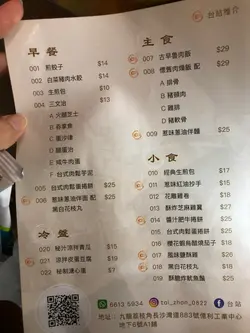 台站推介
早餐
001 煎餃子 $14
002 白菜豬肉水餃 $14
003 生煎包 $10
004 三文治 $13
A 火腿芝士
B 吞拿魚
C 蛋沙律
D 蛋治
E 純牛肉蛋
F 台式肉鬆芋泥
005 台式肉鬆蛋捲餅 $25
006 惹味蔥油伴麵 配 $25
黑白花枝丸
冷盤
020 秘汁涼拌青瓜 $15
021 涼拌皮蛋豆腐 $15
022 秘制溏心蛋 $17
主食
007 古早魯肉飯 $29
008 懷舊肉燥飯 配 $39
A 排骨
B 豬頸肉
C 雞排
D 豬軟骨
009 惹味蔥油伴麵 $25
小食
010 經典生煎包 $17
011 惹味紅油抄手 $15
012 花雕雞卷 $18
013 酥炸芝麻雞翼 $17
014 醬汁肥牛捲餅 $25
015 台式肉鬆蛋捲餅 $25
016 櫻花蝦烏魚燒茄子
017 風味鹽酥雞 $25
018 黑白花枝丸 $18
019 酥炸魷魚鬚 $25
6613 5934
toi_zhan_0822
台站
地址：九龍荔枝角長沙灣道883號億利工業中心
地下6號A1舖